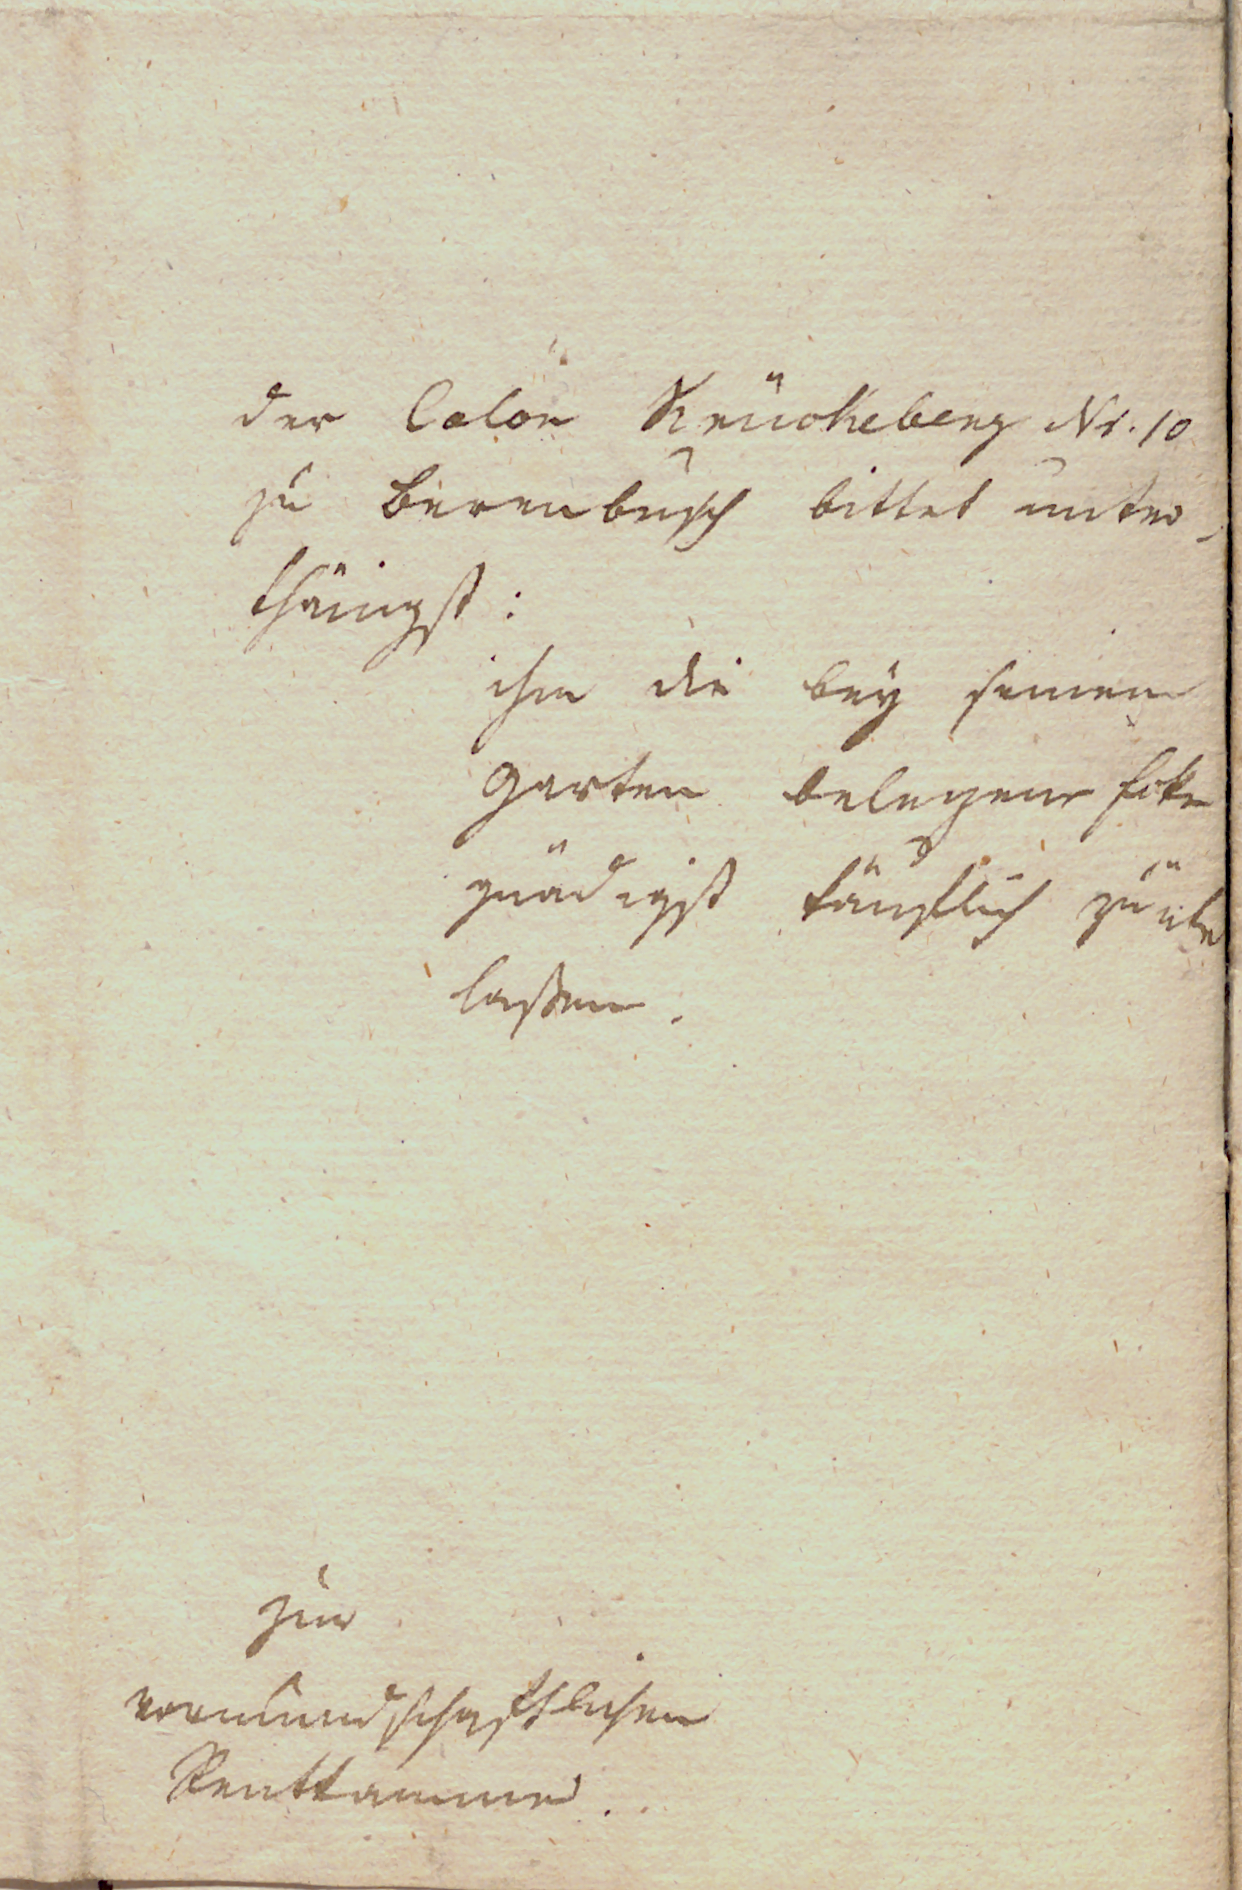 der Colon Krückeberg Nr. 10
zu Berenbusch bittet unter-
thänigst:
ihm die bey seinem
Garten belegene
gnädigst käuflich zu übe
laßen.
Zur
vormundschaftlichen
Rentkammer.